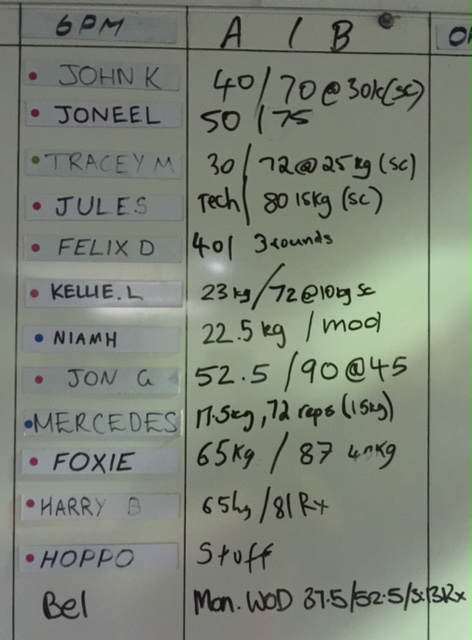 6PM A / B
JOHN K 40/70@30k(sc)
JONEEL 50/75
TRACEY M 30/72@25kg (sc)
JULES Tech/ 80 15kg (sc)
FELIX D 40/ 3rounds
KELLIE.L 23kg/72@10kg sc
NIAMH 22.5kg / mod
JON G 52.5/90@45
MERCEDES 17.5kg, 72 reps (15kg)
FOXIE 65kg / 87
HARRY B 65kg/81Rx
HOPPO Stuff
Bel Mon. WOD 37.5/52.5/